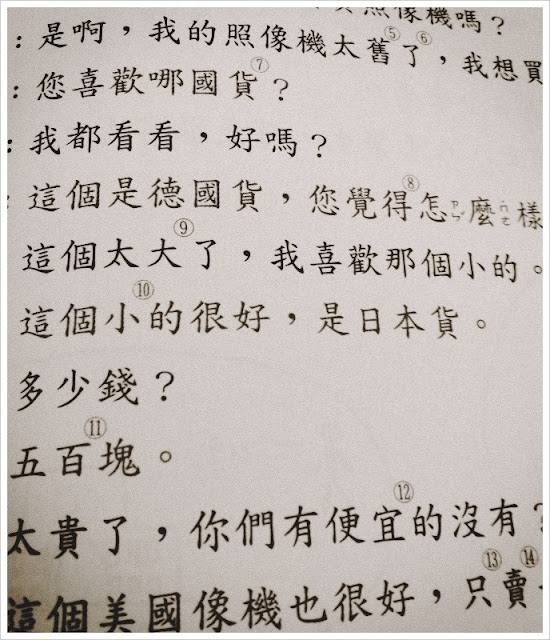 照像機嗎？
：是啊，我的照像機太舊⑤了⑥，我想買
：您喜歡哪國⑦貨？
：我都看看，好嗎？
：這個是德國貨，您覺得⑧怎麼樣
這個太大⑨了，我喜歡那個小的。
這個小⑩的很好，是日本貨。
多少錢？
五百⑪塊。
太貴了，你們有便宜⑫的沒有？
這個美國像機也很好，只⑬賣⑭